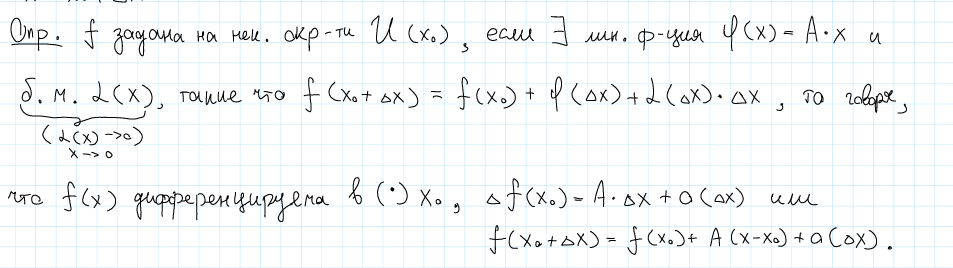 Опр. f задана на нек. окр-ти U(x₀), если ∃ лин. ф-ция φ(x) = A·x и
б. м. α(x), такие что f(x₀ + Δx) = f(x₀) + φ(Δx) + α(Δx)·Δx, то говорят,
(α(x) → 0)
x → 0
что f(x) дифференцируема в (·) x₀, Δf(x₀) = A·Δx + o(Δx) или
f(x₀ + Δx) = f(x₀) + A(x-x₀) + o(Δx).